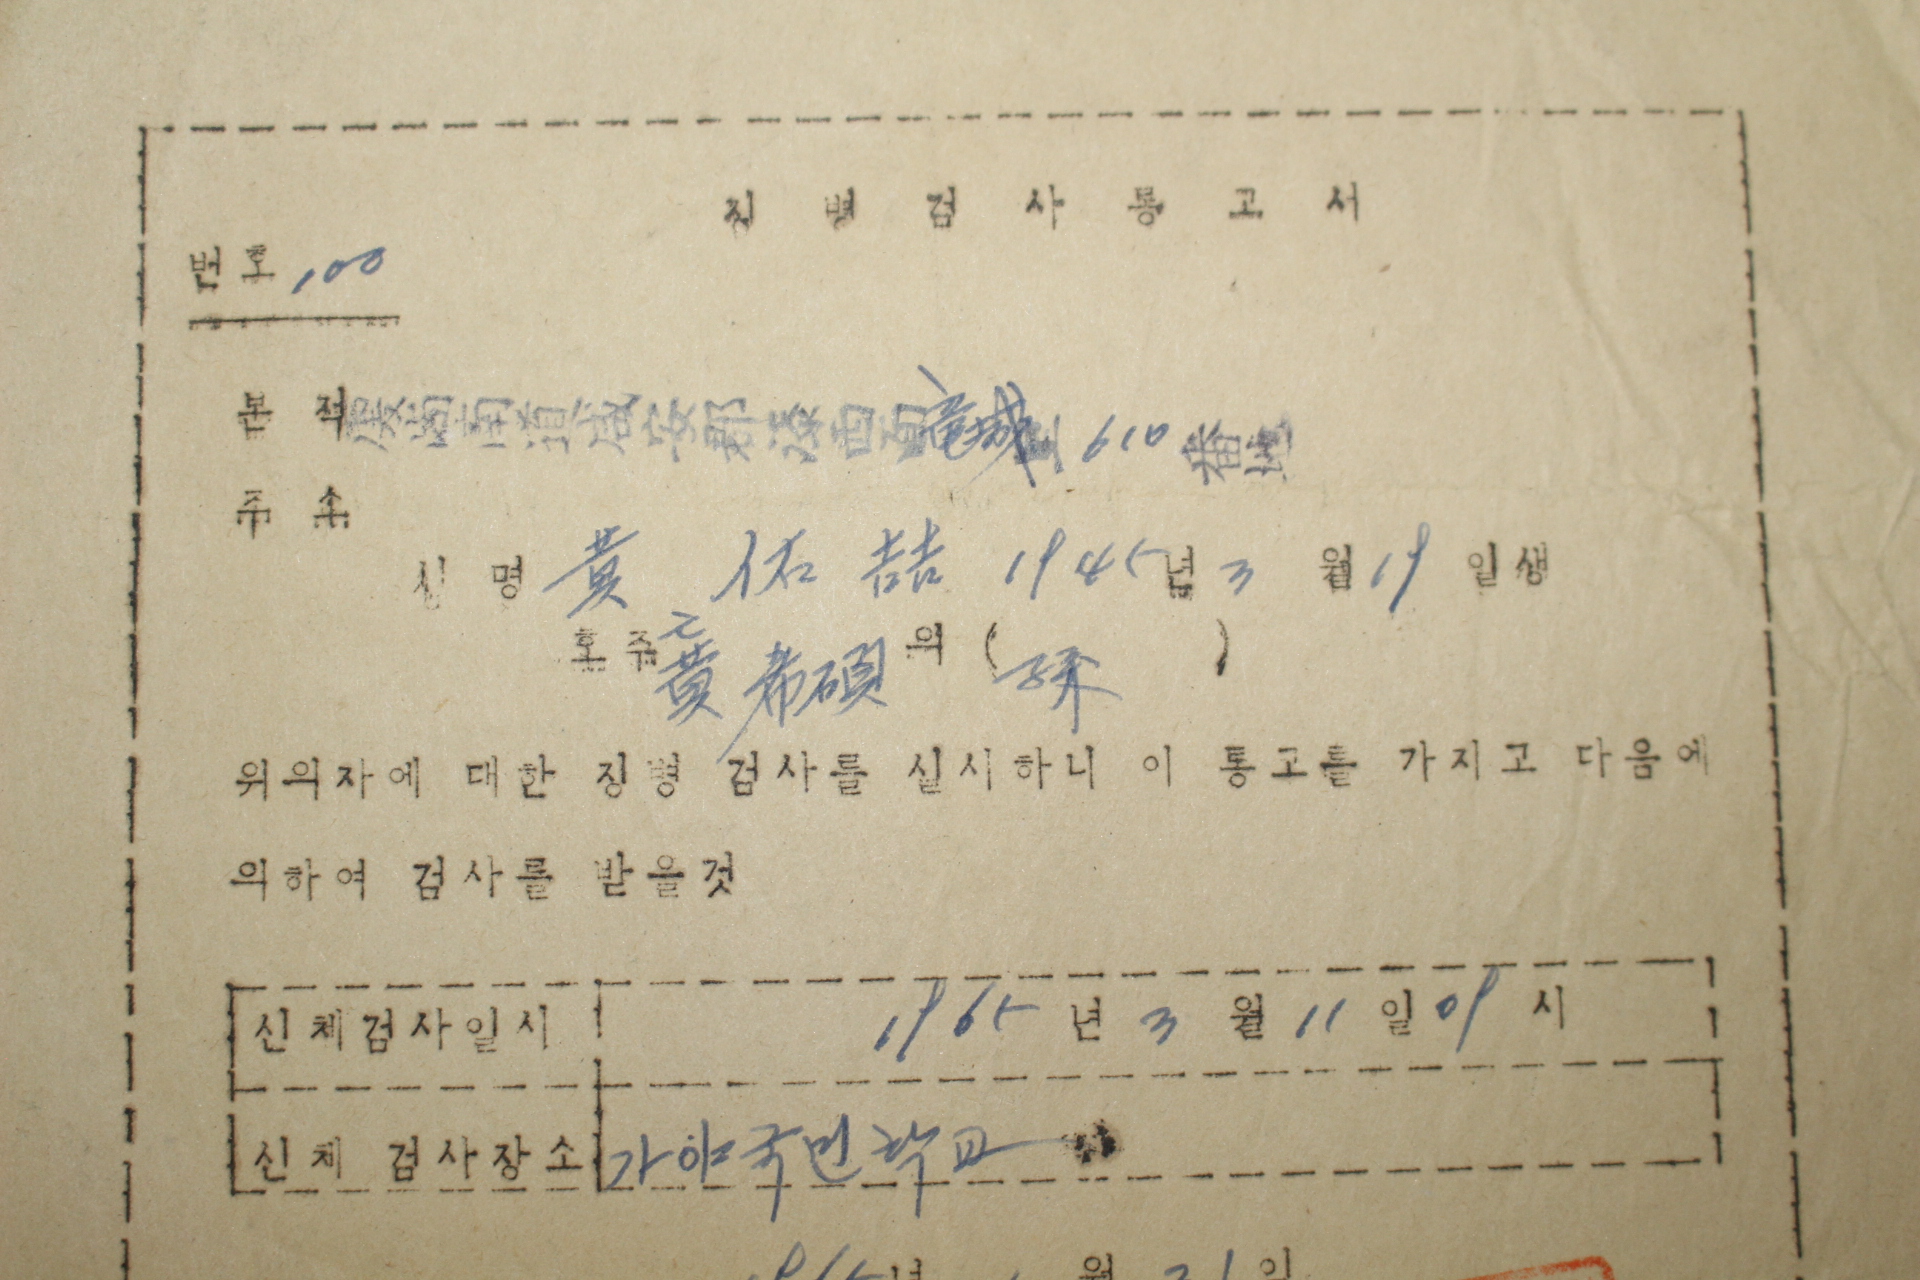 징병검사통고서
번호 100
본적 慶尙南道咸安郡漆西面龍城里 610 番地
주소
성명 黃 佑 喆 1945년 3 월 19 일생
호주 亡 黃希碩 의 ( 孫 )
위의자에 대한 징병 검사를 실시하니 이 통고를 가지고 다음에
의하여 검사를 받을것
신체검사일시 1965 년 3 월 11 일 09 시
신체 검사장소 가야국민학교
1965년 월 21 일